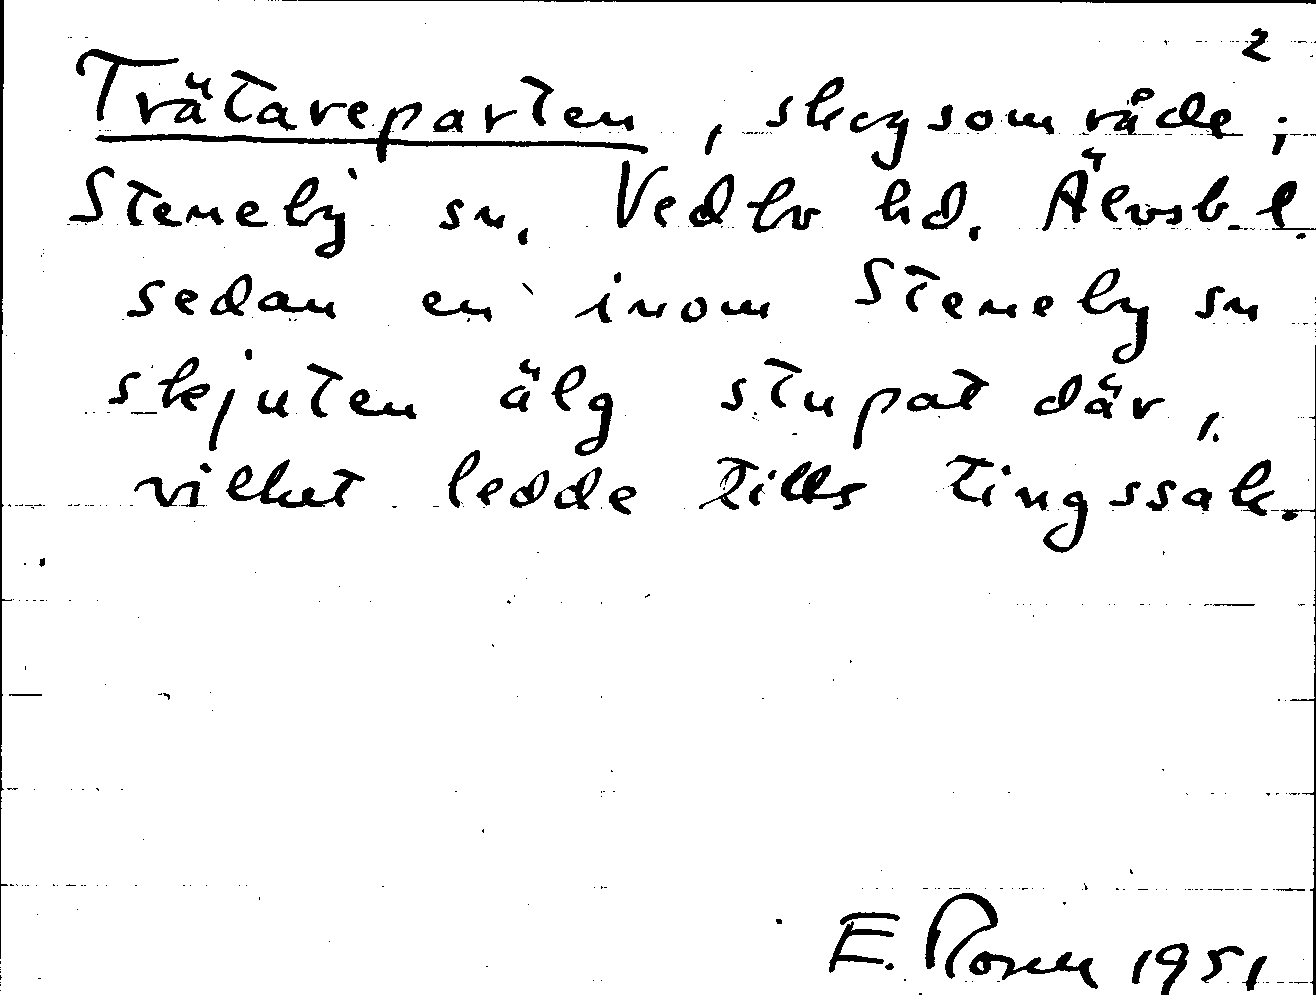 2
Trätareparten, skogsområde;
Steneby sn. Vedbo hd. Älvsb. l.
sedan en inom Steneby sn
skjuten älg stupat där,
vilket ledde till tingssak.
E. Rosen 1951